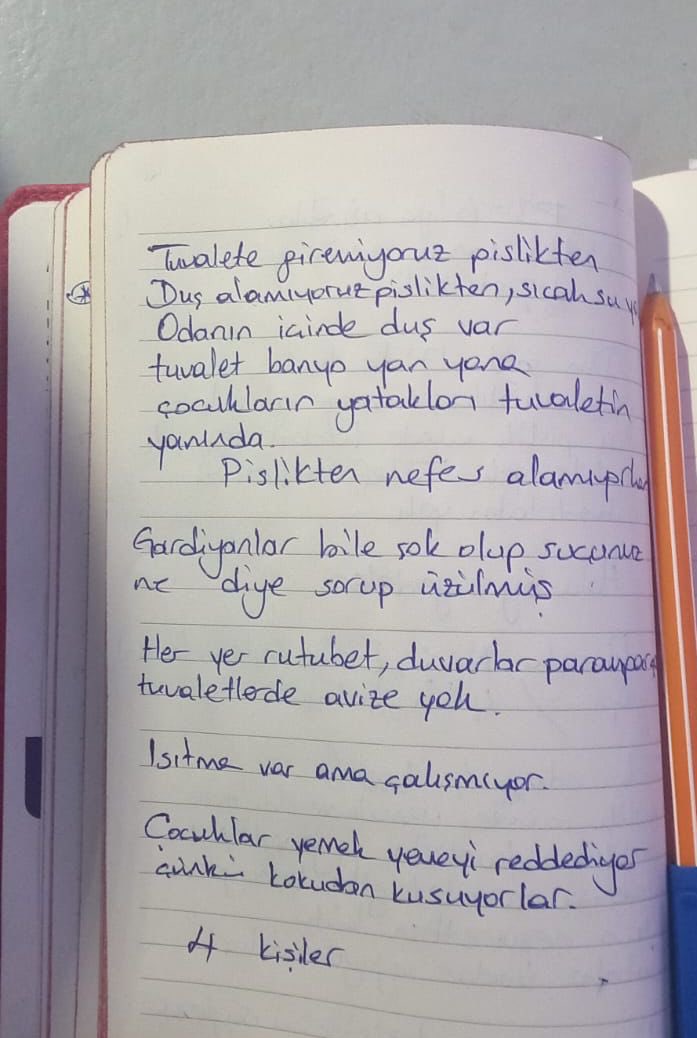 Tuvalete giremiyoruz pislikten
Duş alamıyoruz pislikten, sıcak su y
Odanın içinde duş var
tuvalet banyo yan yana
çocukların yatakları tuvaletin
yanında.
Pislikten nefes
Gardiyanlar bile şok olup suçunuz
ne diye sorup üzülmüş
Her yer rutubet, duvarlar
tuvaletlerde avize yok.
Isıtma var ama çalışmıyor.
Çocuklar yemek yemeyi reddediyor
çünkü kokudan kusuyorlar.
4 kişiler